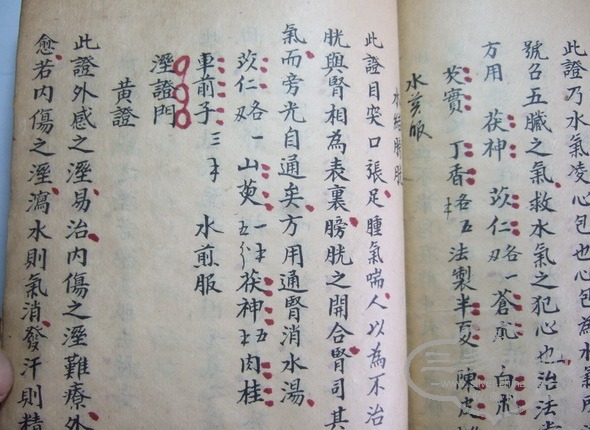 此證乃水氣凌心包也心包為水氣所
號召五臟之氣救水氣之犯心也治法
方用 茯神 苡仁各一刄 蒼朮 白朮
芡實 丁香各五 法製半夏 陳皮
水煎服
此證目突口張足腫氣喘人以為不治
胱與腎相為表裏膀胱之開合腎司其
氣而旁光自通矣方用通腎消水湯
苡仁各一刄 山萸一 五分 茯神五 肉桂
車前子三 水煎服
溼證門
黃證
此證外感之溼易治內傷之溼難療外
愈若內傷之溼瀉水則氣消發汗則精